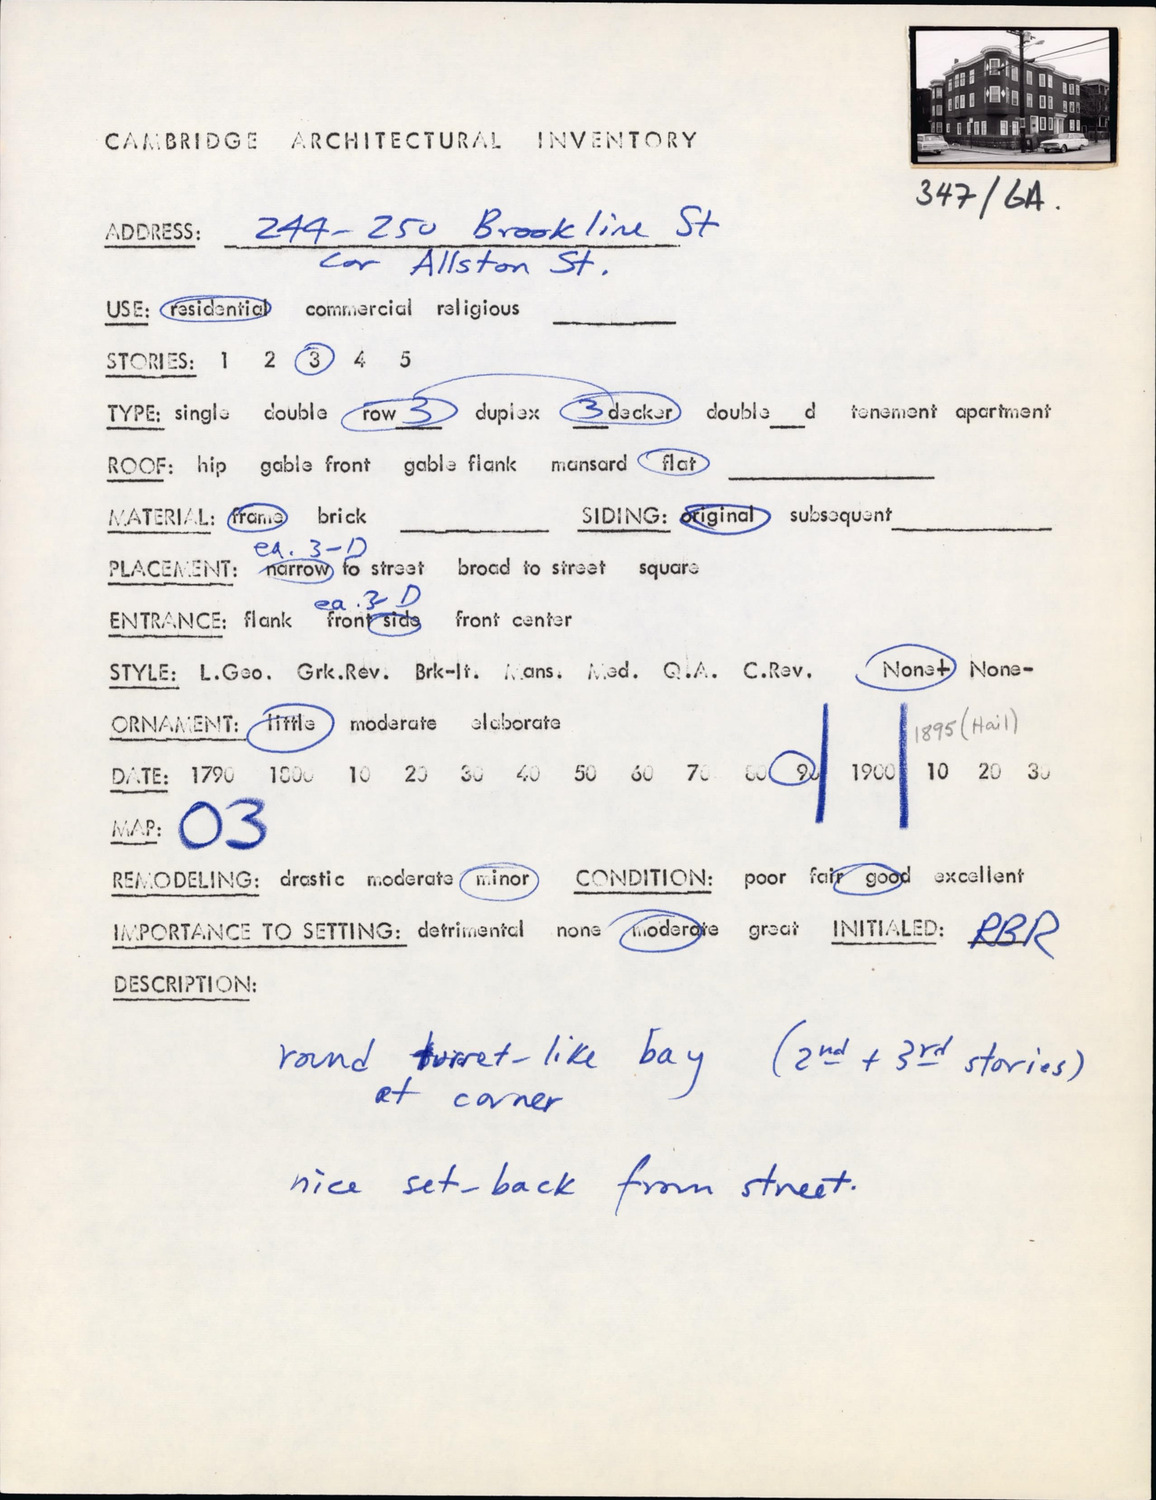 CAMBRIDGE ARCHITECTURAL INVENTORY
347/6A.
ADDRESS: 244-250 Brookline St
cor Allston St.
USE: residential commercial religious
STORIES: 1 2 3 4 5
TYPE: single double row 3 duplex 3 decker double d tenement apartment
ROOF: hip gable front gable flank mansard flat
MATERIAL: frame brick SIDING: original subsequent
ea. 3-D
PLACEMENT: narrow to street broad to street square
ea. 3-D
ENTRANCE: flank front side front center
STYLE: L.Geo. Grk.Rev. Brk-It. Mans. Med. Q.A. C.Rev. None+ None-
ORNAMENT: little moderate elaborate
1895 (Hail)
DATE: 1790 1800 10 20 30 40 50 60 70 80 90 1900 10 20 30
MAP: 03
REMODELING: drastic moderate minor CONDITION: poor fair good excellent
IMPORTANCE TO SETTING: detrimental none moderate great INITIALED: RBR
DESCRIPTION:
round turret-like bay (2nd + 3rd stories)
at corner
nice set-back from street.